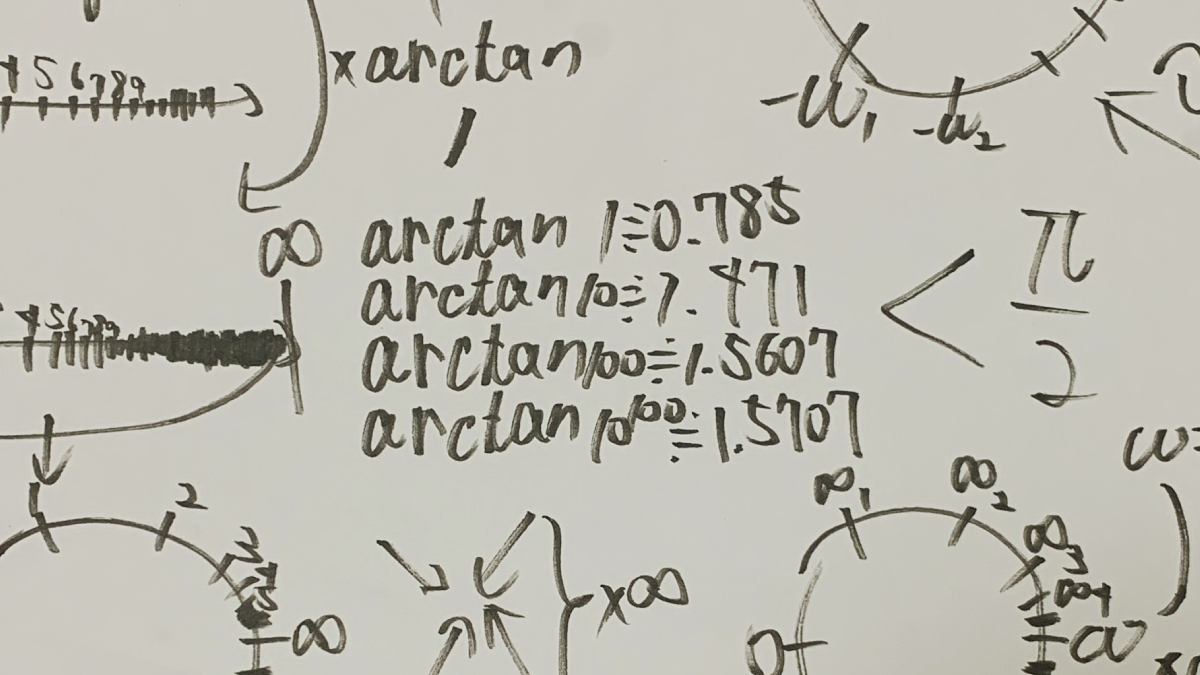 4 5 6 7 8 9
×arctan
-ω₁ -ω₂
∞
arctan 1≒0.785
arctan 10≒1.471
arctan 100≒1.5607
arctan 10¹⁰⁰≒1.5707
< π/2
4 5 6 7 8 9
ω=
1 2 3 4
∞
×∞
∞₁ ∞₂ ∞₃ ∞₄
0
ω